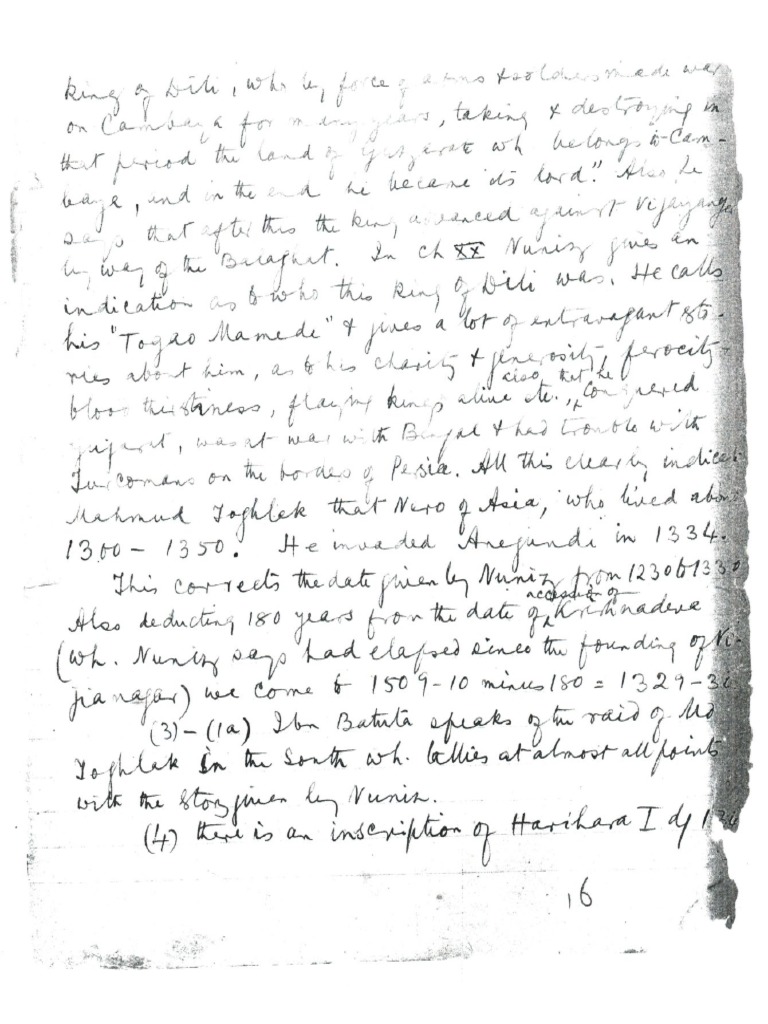 king of Dili, who by force of arms & soldiers made war
on Cambaya for many years, taking & destroying in
that period the land of Guzarate wh belongs to Cam-
baya, and in the end he became its lord." Also he
says that after this the king advanced against Vijayanaga
by way of the Balaghat. In ch XX Nuniz gives an
indication as to who this king of Dili was. He calls
his "Togao Mamede" & gives a lot of extravagant sto-
ries about him, as to his charity & generosity, ferocity
blood thirstiness, flaying kings alive etc., also that he conquered
Gujarat, was at war with Bengal & had trouble with
Turcomans on the borders of Persia. All this clearly indica
Mahmud Toghlak that Nero of Asia, who lived abou
1300 - 1350. He invaded Anegundi in 1334.
This corrects the date given by Nuniz from 1230 to 1330
Also deducting 180 years from the date of accession of Krishnadeva
(wh. Nuniz says had elapsed since the founding of Vi-
jianagar) we come to 1509-10 minus 180 = 1329-30
(3) - (1a) Ibn Batuta speaks of the raid of Md
Toghlak in the South wh. tallies at almost all points
with the story given by Nuniz.
(4) there is an inscription of Harihara I of
16